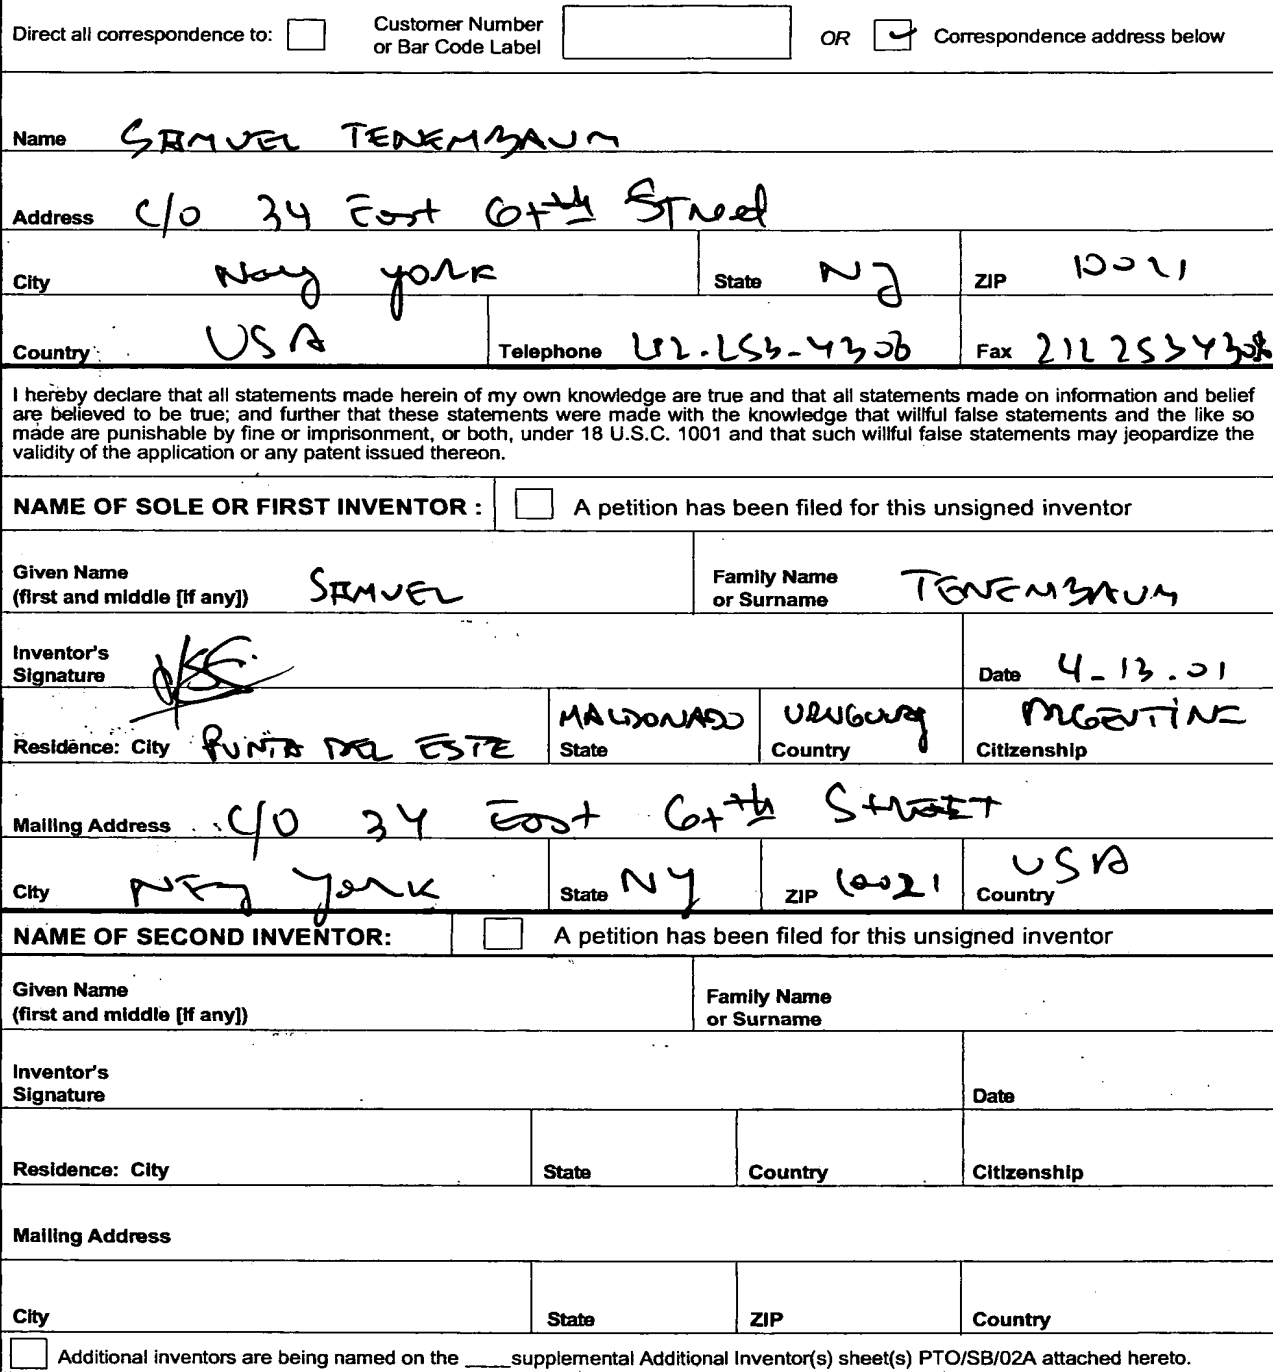 Direct all correspondence to: Customer Number or Bar Code Label OR Correspondence address below
Name SAMUEL TENEMBAUM
Address C/O 34 East 64th Street
City New York State NY ZIP 10021
Country USA Telephone 212.253-4306 Fax 212 253 4308
I hereby declare that all statements made herein of my own knowledge are true and that all statements made on information and belief
are believed to be true; and further that these statements were made with the knowledge that willful false statements and the like so
made are punishable by fine or imprisonment, or both, under 18 U.S.C. 1001 and that such willful false statements may jeopardize the
validity of the application or any patent issued thereon.
NAME OF SOLE OR FIRST INVENTOR : A petition has been filed for this unsigned inventor
Given Name (first and middle [if any]) SAMUEL Family Name or Surname TENEMBAUM
Inventor's Signature Date 4-13.01
Residence: City PUNTA DEL ESTE State MALDONADO Country URUGUAY Citizenship ARGENTINE
Mailing Address C/O 34 East 64th STREET
City NEW York State NY ZIP 10021 Country USA
NAME OF SECOND INVENTOR: A petition has been filed for this unsigned inventor
Given Name (first and middle [if any]) Family Name or Surname
Inventor's Signature Date
Residence: City State Country Citizenship
Mailing Address
City State ZIP Country
Additional inventors are being named on the ____supplemental Additional Inventor(s) sheet(s) PTO/SB/02A attached hereto.